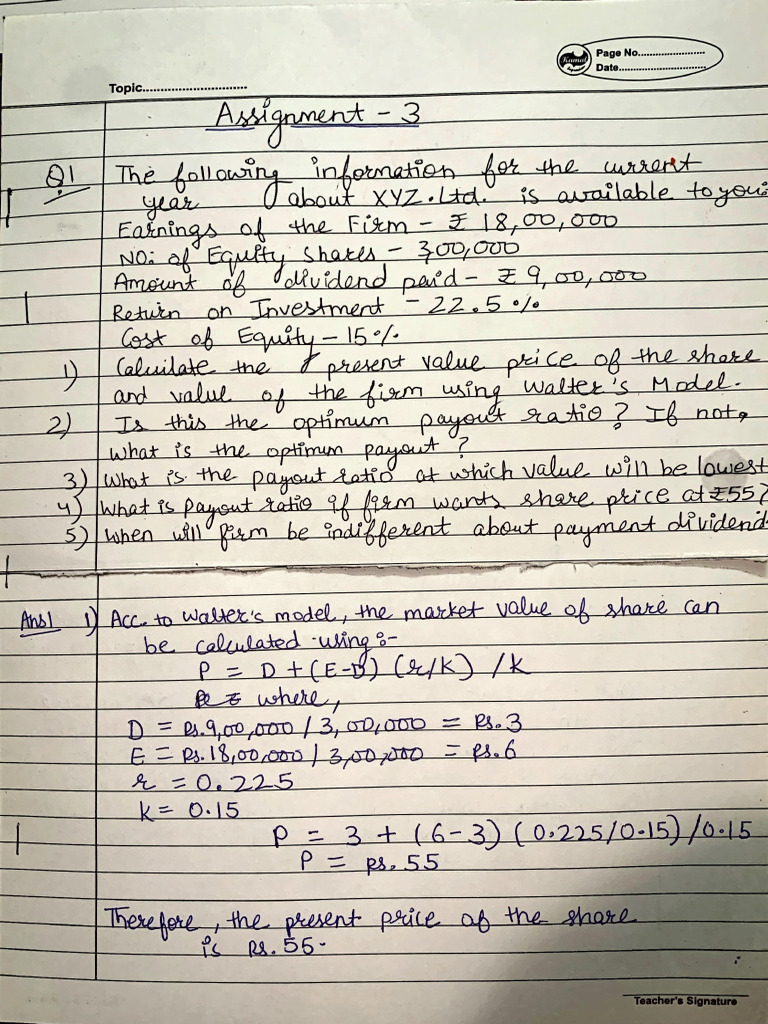 Kamal
Page No.........................
Date..............................
Topic..............................
Assignment - 3
Q1 The following information for the current
year about XYZ.Ltd. is available to you:
Earnings of the Firm - ₹ 18,00,000
NO: of Equity Shares - 3,00,000
Amount of dividend paid - ₹ 9,00,000
Return on Investment - 22.5%
Cost of Equity - 15%
1) Calculate the present value price of the share
and value of the firm using Walter's Model.
2) Is this the optimum payout ratio? If not,
what is the optimum payout?
3) What is the payout ratio at which value will be lowest
4) What is payout ratio if firm wants share price at ₹55?
5) When will firm be indifferent about payment dividend
Ans1 1) Acc. to Walter's model, the market value of share can
be calculated using:-
P = D + (E-D) (r/K) /k
where,
D = Rs.9,00,000 / 3,00,000 = Rs.3
E = Rs.18,00,000 / 3,00,000 = Rs.6
r = 0.225
k = 0.15
P = 3 + (6-3) (0.225/0.15) /0.15
P = Rs. 55
Therefore, the present price of the share
is Rs. 55.
Teacher's Signature